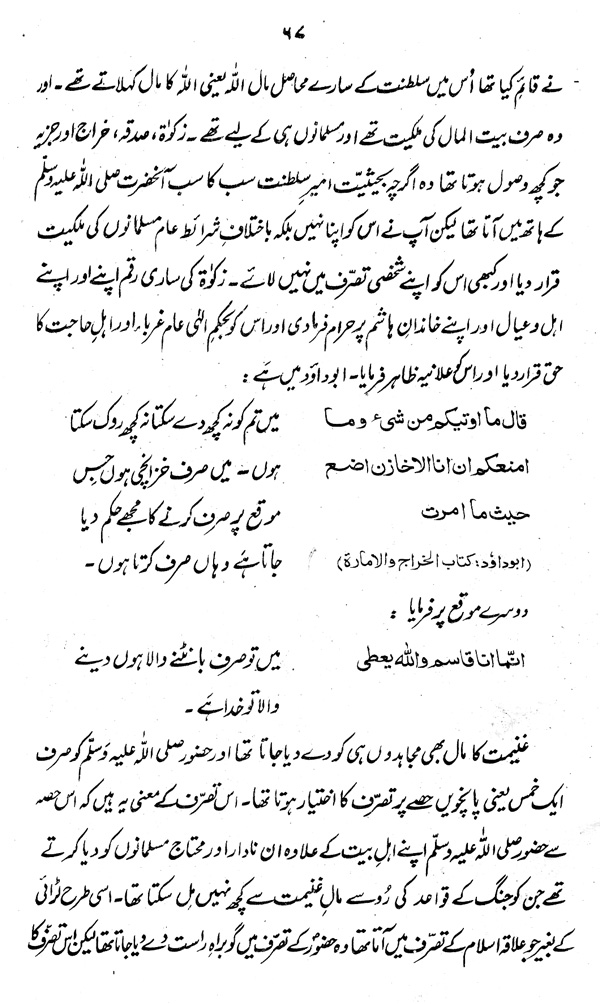 ۶۷
نے قائم کیا تھا اُس میں سلطنت کے سارے محاصل مال اللہ یعنی اللہ کا مال کہلاتے تھے۔ اور
وہ صرف بیت المال کی ملکیت تھے اور مسلمانوں ہی کے لیے تھے۔ زکوٰۃ، صدقہ، خراج اور جزیہ
جو کچھ وصول ہوتا تھا وہ اگرچہ بحیثیت امیرِ سلطنت سب کا سب آنحضرت صلی اللہ علیہ وسلّم
کے ہاتھ میں آتا تھا لیکن آپ نے اس کو اپنا نہیں بلکہ باختلافِ شرائط عام مسلمانوں کی ملکیت
قرار دیا اور کبھی اس کو اپنے شخصی تصرّف میں نہیں لائے۔ زکوٰۃ کی ساری رقم اپنے اور اپنے
اہل و عیال اور اپنے خاندانِ ہاشم پر حرام فرما دی اور اس کو بحکمِ الٰہی عام غرباء اور اہلِ حاجت کا
حق قرار دیا اور اس کو علانیہ ظاہر فرمایا۔ ابوداؤد میں ہے :
قال ما اوتیکم من شیء و ما میں تم کو نہ کچھ دے سکتا نہ کچھ روک سکتا
امنعکم ان انا الا خازن اضع ہوں۔ میں صرف خزانچی ہوں جس
حیث ما امرت موقع پر صرف کرنے کا مجھے حکم دیا
(ابوداؤد: کتاب الخراج والامارۃ) جاتا ہے وہاں صرف کرتا ہوں۔
دوسرے موقع پر فرمایا :
انما انا قاسم واللہ یعطی میں تو صرف بانٹنے والا ہوں دینے
والا تو خدا ہے۔
غنیمت کا مال بھی مجاہدوں ہی کو دے دیا جاتا تھا اور حضور صلی اللہ علیہ وَسلّم کو صرف
ایک خمس یعنی پانچویں حصے پر تصرّف کا اختیار ہوتا تھا۔ اس تصرّف کے معنی یہ ہیں کہ اس حصہ
سے حضور صلی اللہ علیہ وسلّم اپنے اہلِ بیت کے علاوہ ان نادار اور محتاج مسلمانوں کو دیا کرتے
تھے جن کو جنگ کے قواعد کی رُو سے مالِ غنیمت سے کچھ نہیں مل سکتا تھا۔ اسی طرح لڑائی
کے بغیر جو علاقہ اسلام کے تصرّف میں آتا تھا وہ حضورؐ کے تصرّف میں گو براہِ راست دے دیا جاتا تھا لیکن اس تصرّف کا